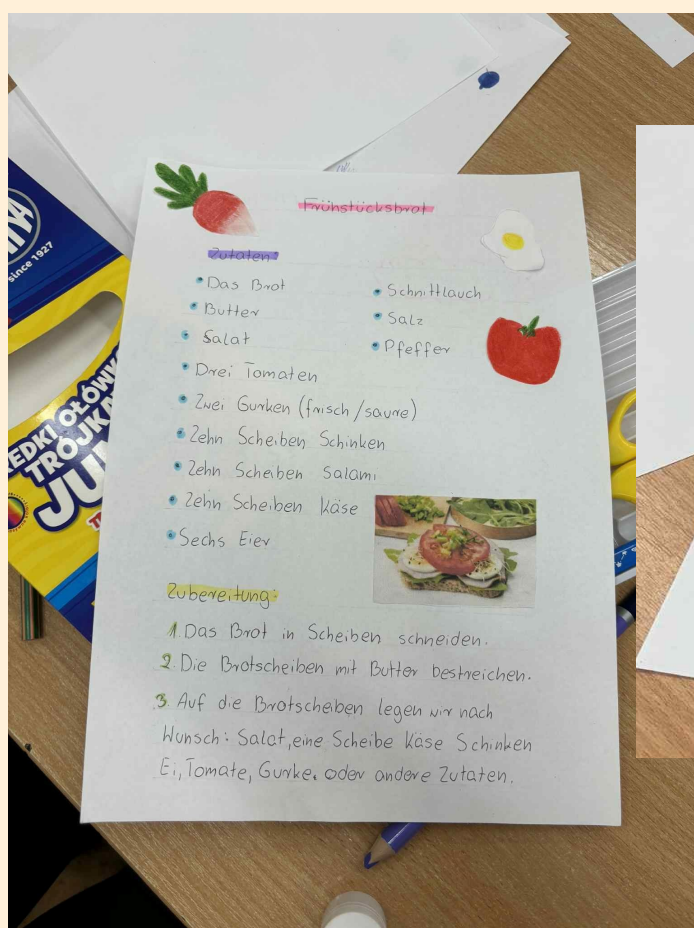 Frühstücksbrot
Zutaten:
• Das Brot
• Butter
• Salat
• Drei Tomaten
• Zwei Gurken (frisch/saure)
• Zehn Scheiben Schinken
• Zehn Scheiben Salami
• Zehn Scheiben Käse
• Sechs Eier
• Schnittlauch
• Salz
• Pfeffer
Zubereitung:
1. Das Brot in Scheiben schneiden.
2. Die Brotscheiben mit Butter bestreichen.
3. Auf die Brotscheiben legen wir nach
Wunsch: Salat, eine Scheibe Käse Schinken
Ei, Tomate, Gurke. oder andere Zutaten.
since 1927